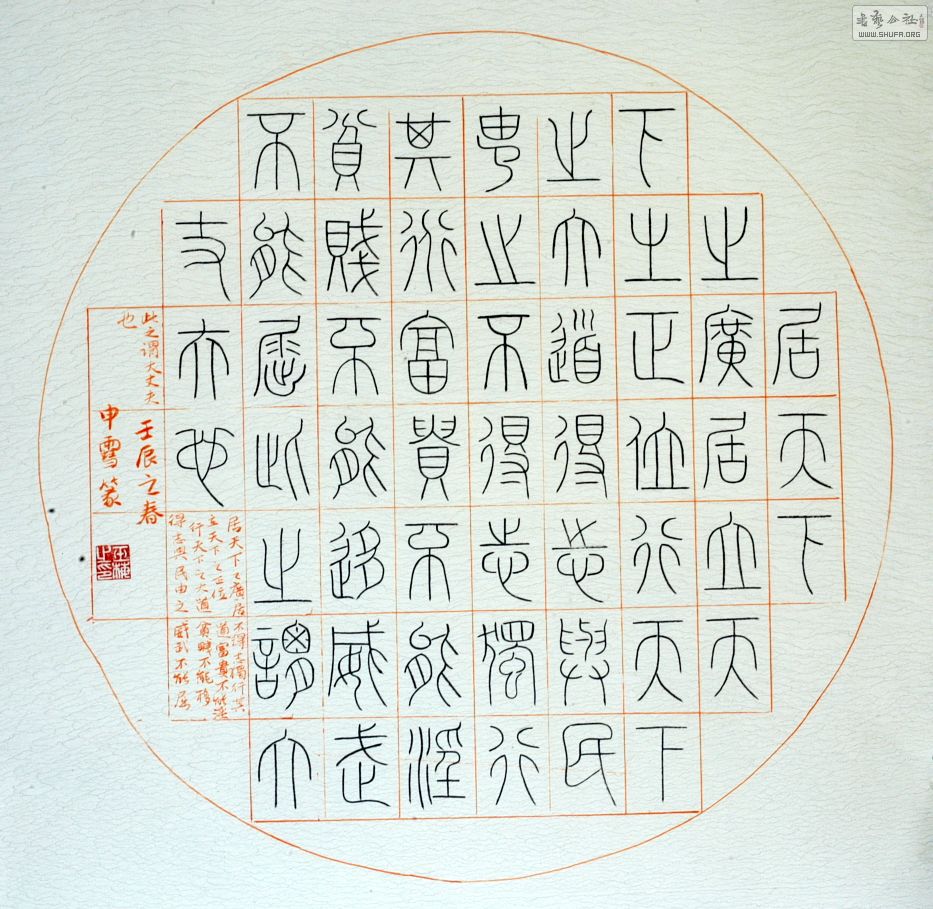 居天下
之廣居立天
下之正位行天下
之大道得志與民
由之不得志獨行
其道富貴不能淫
貧賤不能移威武
不能屈此之謂大
丈夫也
居天下之廣居
立天下之正位
行天下之大道
得志與民由之
不得志獨行其
道富貴不能淫
貧賤不能移
威武不能屈
此之謂大丈夫
也
壬辰之春
申雪篆
书艺公社
WWW.SHUFA.ORG